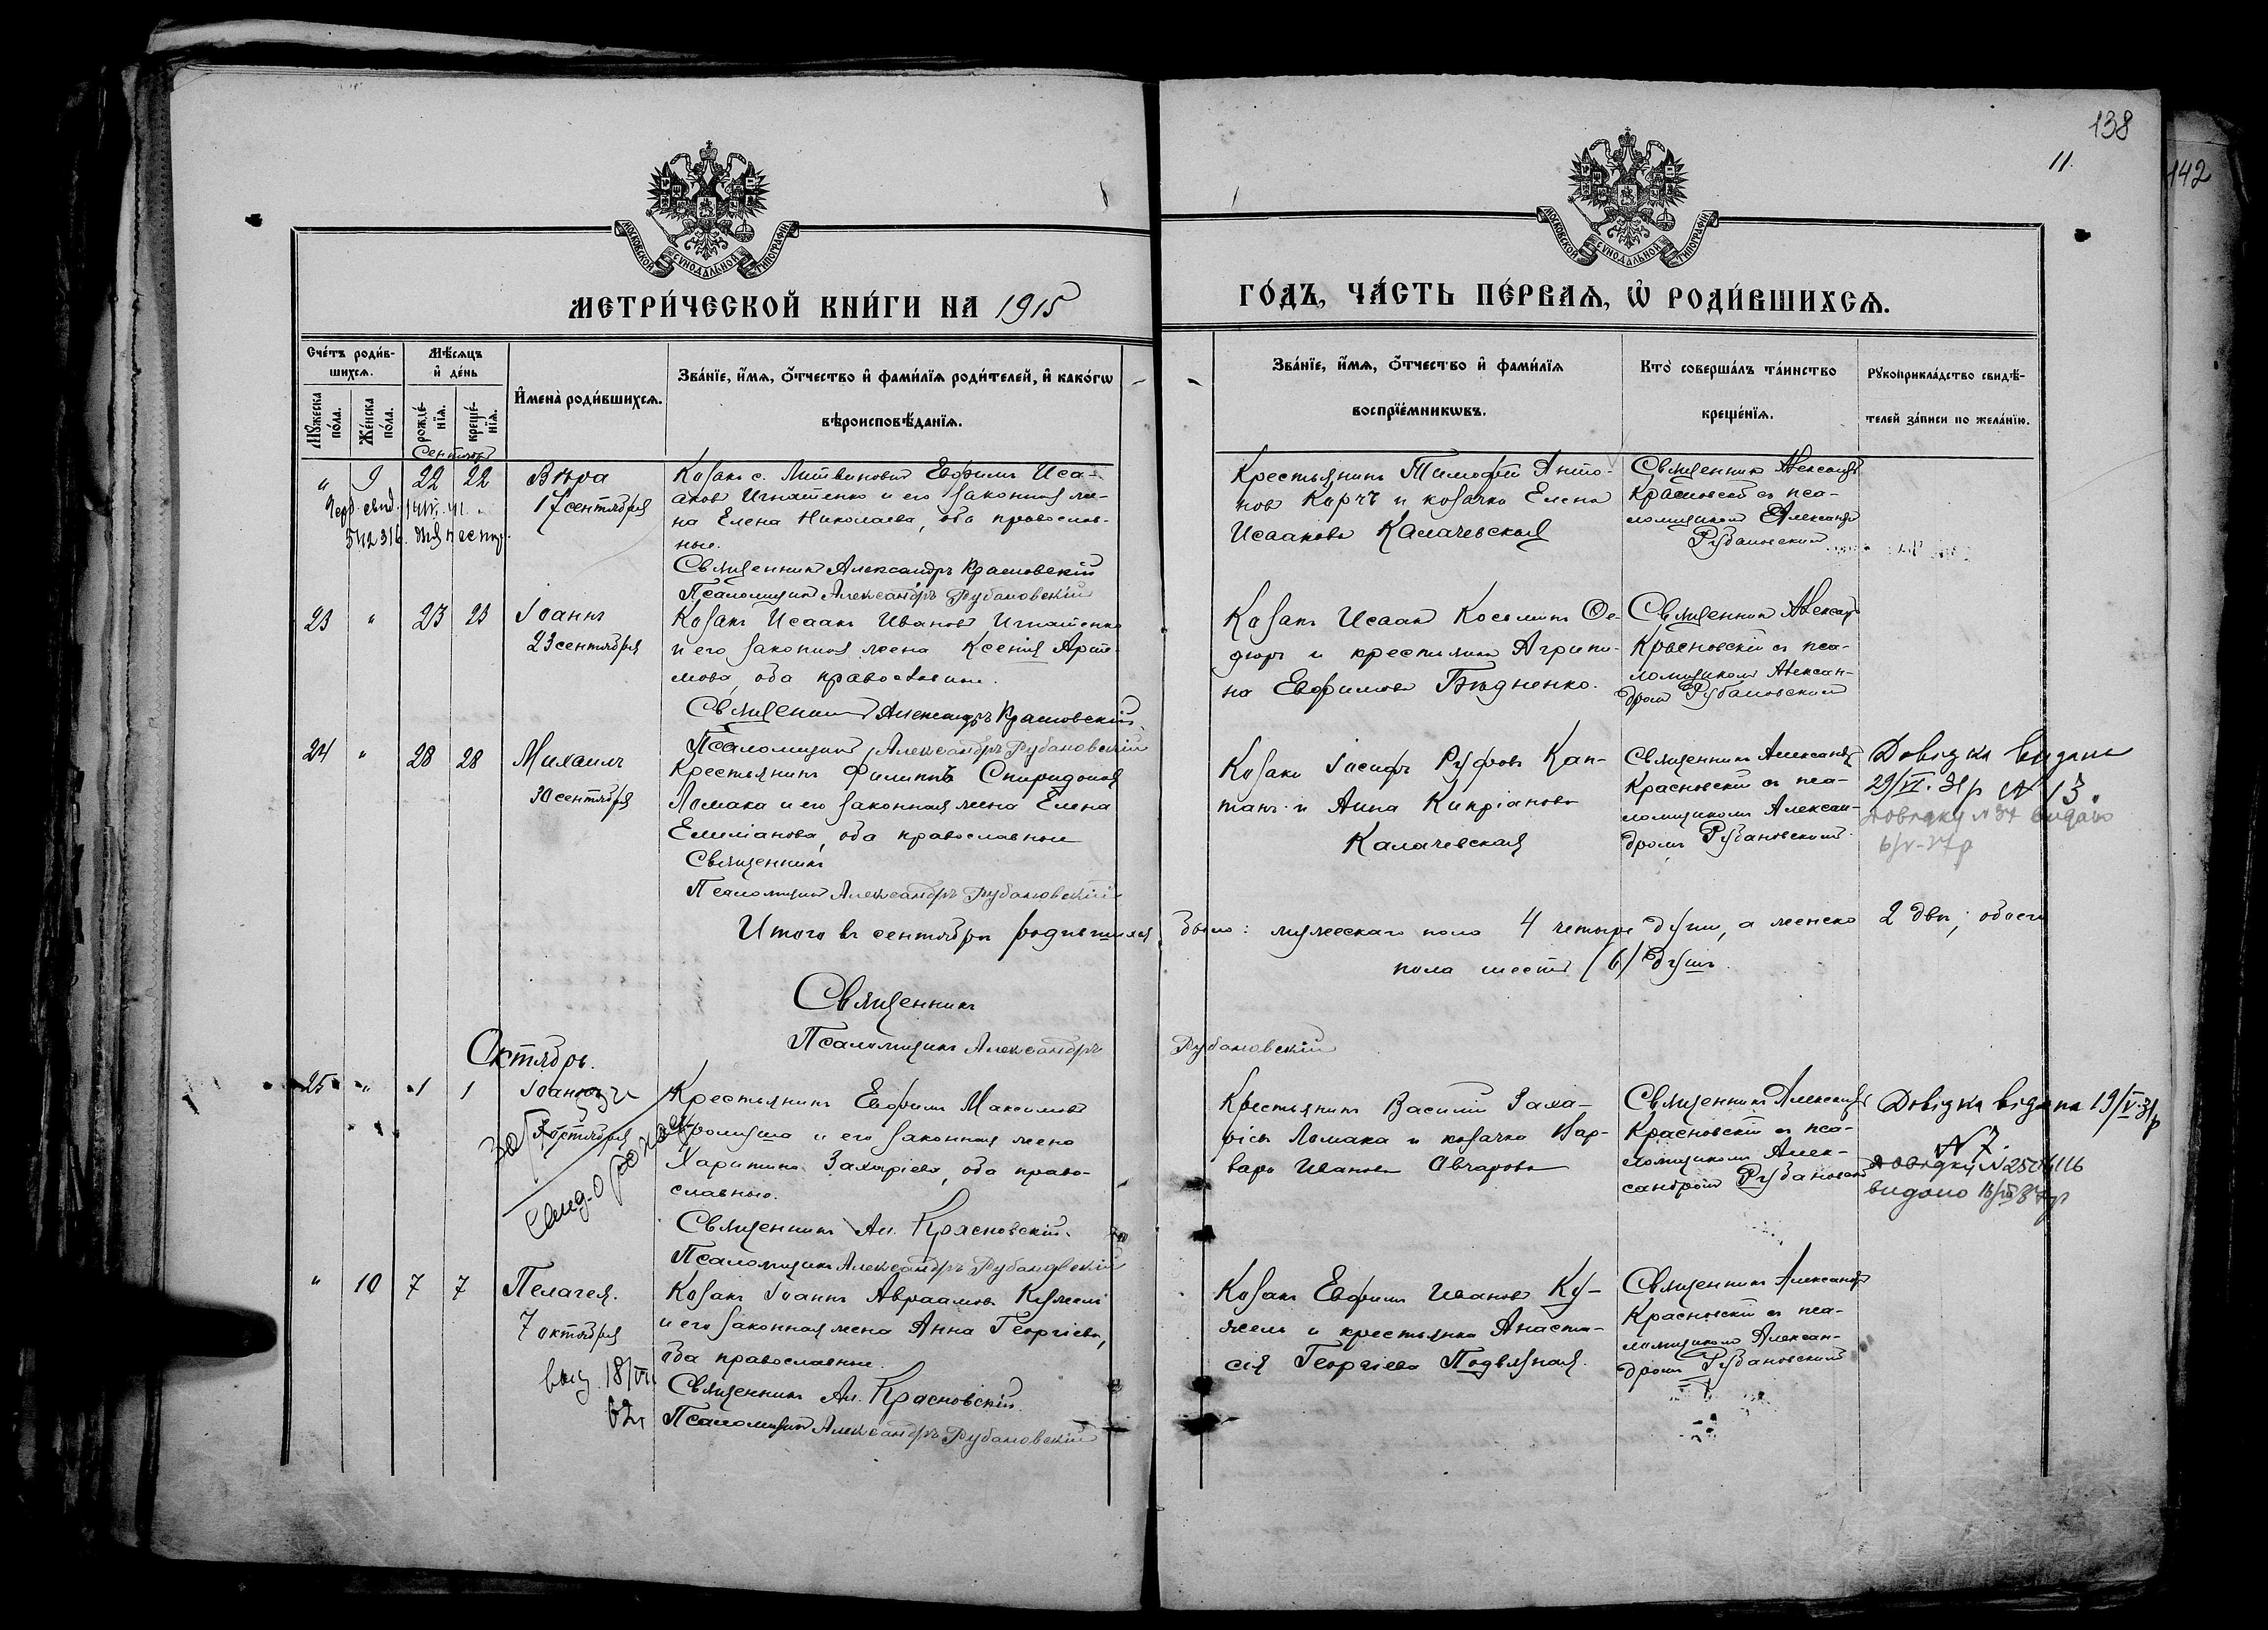 138
11.
142
МОСКОВСКОЙ СѴНОДАЛЬНОЙ ТИПОГРАФІИ
МОСКОВСКОЙ СѴНОДАЛЬНОЙ ТИПОГРАФІИ
МЕТРИ́ЧЕСКОЙ КНИ́ГИ НА 1915
ГО́ДЪ, ЧА́СТЬ ПЕ́РВАЯ, Ѡ҆ РОДИ́ВШИХСЯ.
Сче́тъ роди́в-
шихся.
Мѣ́сяцъ
и҆ де́нь
Му́жеска по́ла.
Же́нска по́ла.
рожде́-нїя.
креще́-нїя.
И҆мена̀ роди́вшихся.
Зва́нїе, и҆́мя, ѻ҆́тчество и҆ фами́лїя роди́телей, и҆ како́гѡ
вѣроисповѣ́данїя.
Зва́нїе, и҆́мя, ѻ҆́тчество и҆ фами́лїя
воспрїе́мниковъ.
Кто̀ соверша́лъ та́инство
креще́нїя.
Рꙋкоприкла́дство свидѣ́-
телей за́писи по жела́нїю.
Сентябрь
" 9 22 22 Вѣра
17 сентября
542316
Козакъ с. Литвиновки Евфимъ Иса-
аковъ Игнатенко и его законная же-
на Елена Николаева, оба православ-
ные.
Священникъ Александръ Красновскій
Псаломщикъ Александръ Рубановскій
Крестьянинъ Тимофей Анто-
новъ Корчъ и козачка Елена
Исаакова Калачевская
Священникъ Александръ
Красновскій съ пса-
ломщикомъ Александр
Рубановскимъ
23 " 23 23 Іоаннъ
23 сентября
Козакъ Исаакъ Ивановъ Игнатенко
и его законная жена Ксенія Арте-
мова, оба православные.
Священникъ Александръ Красновскій
Псаломщикъ Александръ Рубановскій
Козакъ Исаакъ Косминъ Ѳе-
доръ и крестьянка Агрипи-
на Евфимова Бѣдненко.
Священникъ Александръ
Красновскій съ пса-
ломщикомъ Алексан-
дромъ Рубановскимъ
24 " 28 28 Михаилъ
30 сентября
Крестьянинъ Филиппъ Спиридоновъ
Ломака и его законная жена Елена
Емиліанова, оба православные
Священникъ
Псаломщикъ Александръ Рубановскій
Козаки Іосифъ Руфовъ Кап-
танъ и Анна Кипріанова
Калачевская
Священникъ Александръ
Красновскій съ пса-
ломщикомъ Алексан-
дромъ Рубановскимъ
Довідка видана
29/VI. 31 р № 13.
Довідку № 34 видано
6/V-37р
Итого въ сентябрѣ родившихся было: мужескаго пола 4 четыре души, а женска 2 двѣ; обоего
пола шесть (6) душъ.
Священникъ
Псаломщикъ Александръ Рубановскій
Октябрь.
25 " 1 1 Іоаннъ
Крестьянинъ Евфимъ Максимовъ
и его законная жена
Харитина Захаріева, оба право-
славные.
Священникъ Ал. Красновскій.
Псаломщикъ Александръ Рубановскій
Крестьянинъ Василій Заха-
ріевъ Ломака и козачка Вар-
вара Иванова Овчарова
Священникъ Александръ
Красновскій съ пса-
ломщикомъ Алек-
сандромъ Рубановским
Довідка видана 19/V-31р
№ 7.
видано
" 10 7 7 Пелагея.
7 октября
Козакъ Іоаннъ Авраамовъ Кужель
и его законная жена Анна Георгіева,
оба православные.
Священникъ Ал. Красновскій
Псаломщикъ Александръ Рубановскій
Козакъ Евфимъ Ивановъ Ку-
жель и крестьянка Анаста-
сія Георгіева Подвязная.
Священникъ Александръ
Красновскій съ пса-
ломщикомъ Алексан-
дромъ Рубановскимъ